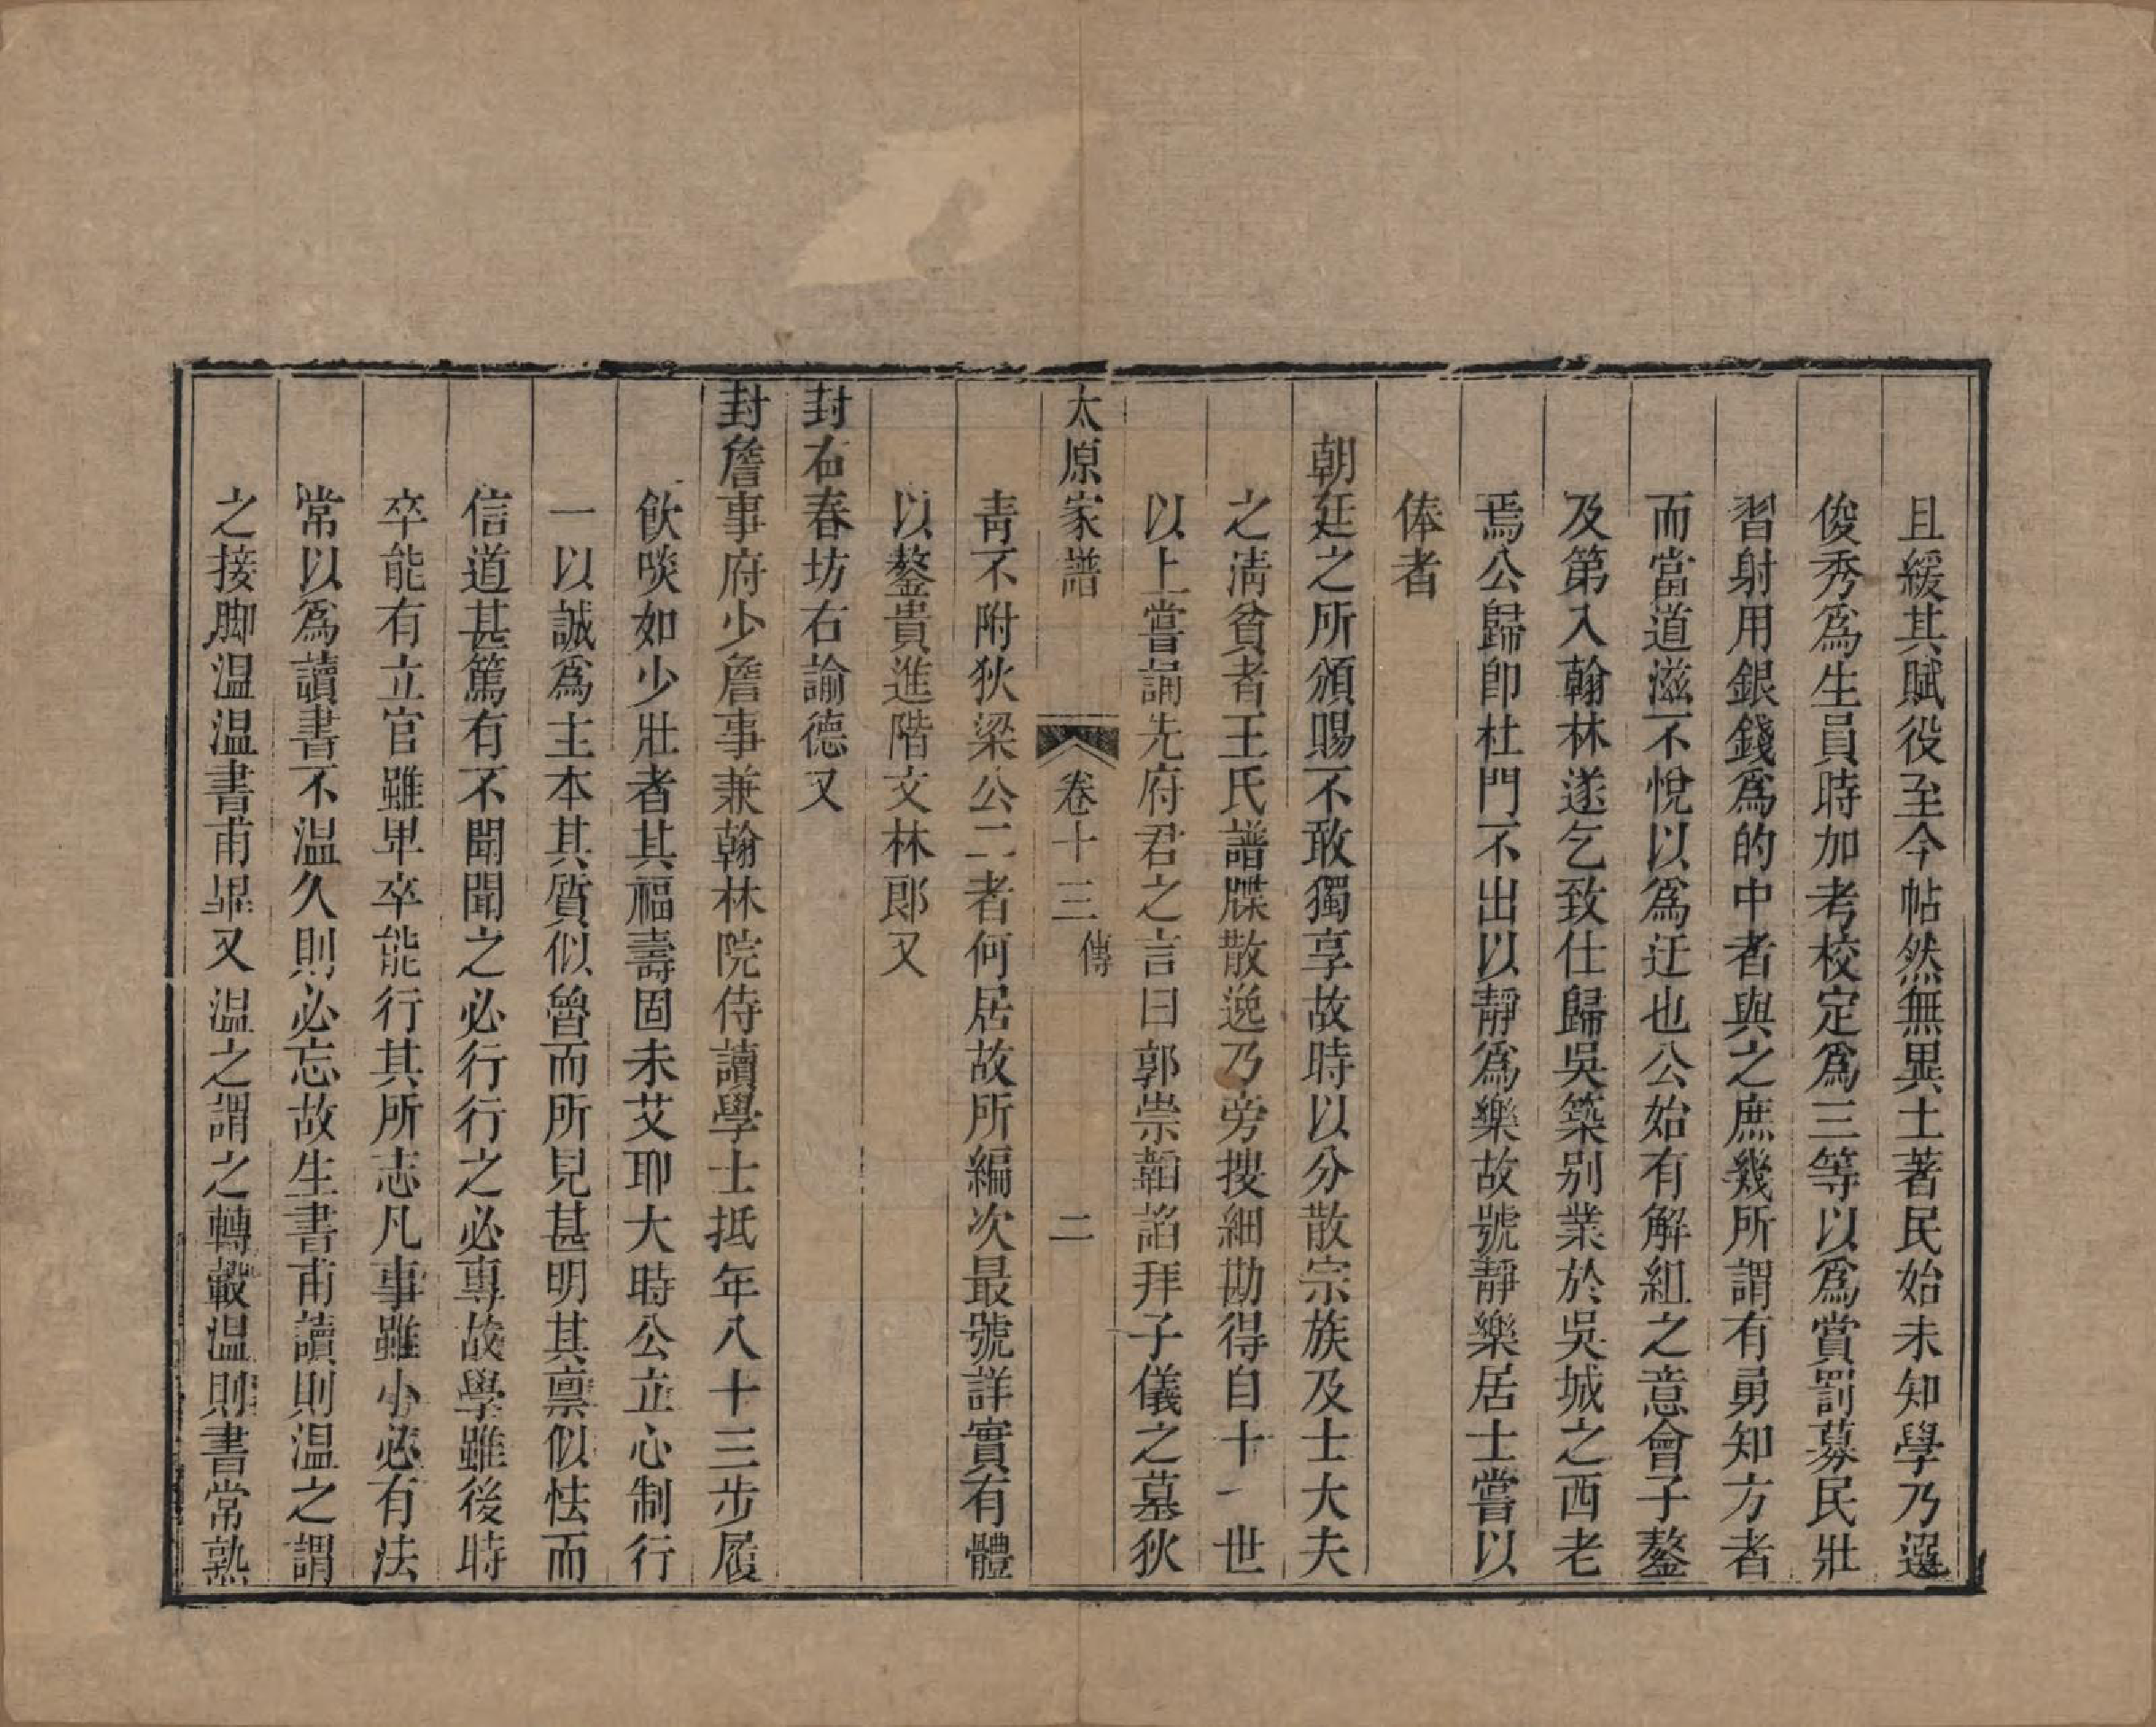 且緩其賦役至今帖然無異土著民始未知學乃選
俊秀爲生員時加考校定爲三等以爲賞罰募民壯
習射用銀錢爲的中者與之庶幾所謂有勇知方者
而當道滋不悅以爲迂也公始有解組之意會子鏊
及第入翰林遂乞致仕歸吳築别業於吳城之西老
焉公歸卽杜門不出以靜爲樂故號靜樂居士嘗以
俸者
朝廷之所頒賜不敢獨享故時以分散宗族及士大夫
之清貧者王氏譜牒散逸乃旁搜細勘得自十一世
以上嘗誦先府君之言曰郭崇韜諂拜子儀之墓狄
太原家譜 卷十三 傳 二
青不附狄梁公二者何居故所編次最號詳實有體
以鏊貴進階文林郎又
封右春坊右諭德又
封詹事府少詹事兼翰林院侍讀學士抵年八十三步履
飲啖如少壯者其福壽固未艾耶大時公立心制行
一以誠爲主本其質似魯而所見甚明其禀似怯而
信道甚篤有不聞聞之必行行之必專故學雖後時
卒能有立官雖卑卒能行其所志凡事雖小必有法
常以爲讀書不溫久則必忘故生書甫讀則溫之謂
之接脚溫溫書甫畢又溫之謂之轉轂溫則書常熟